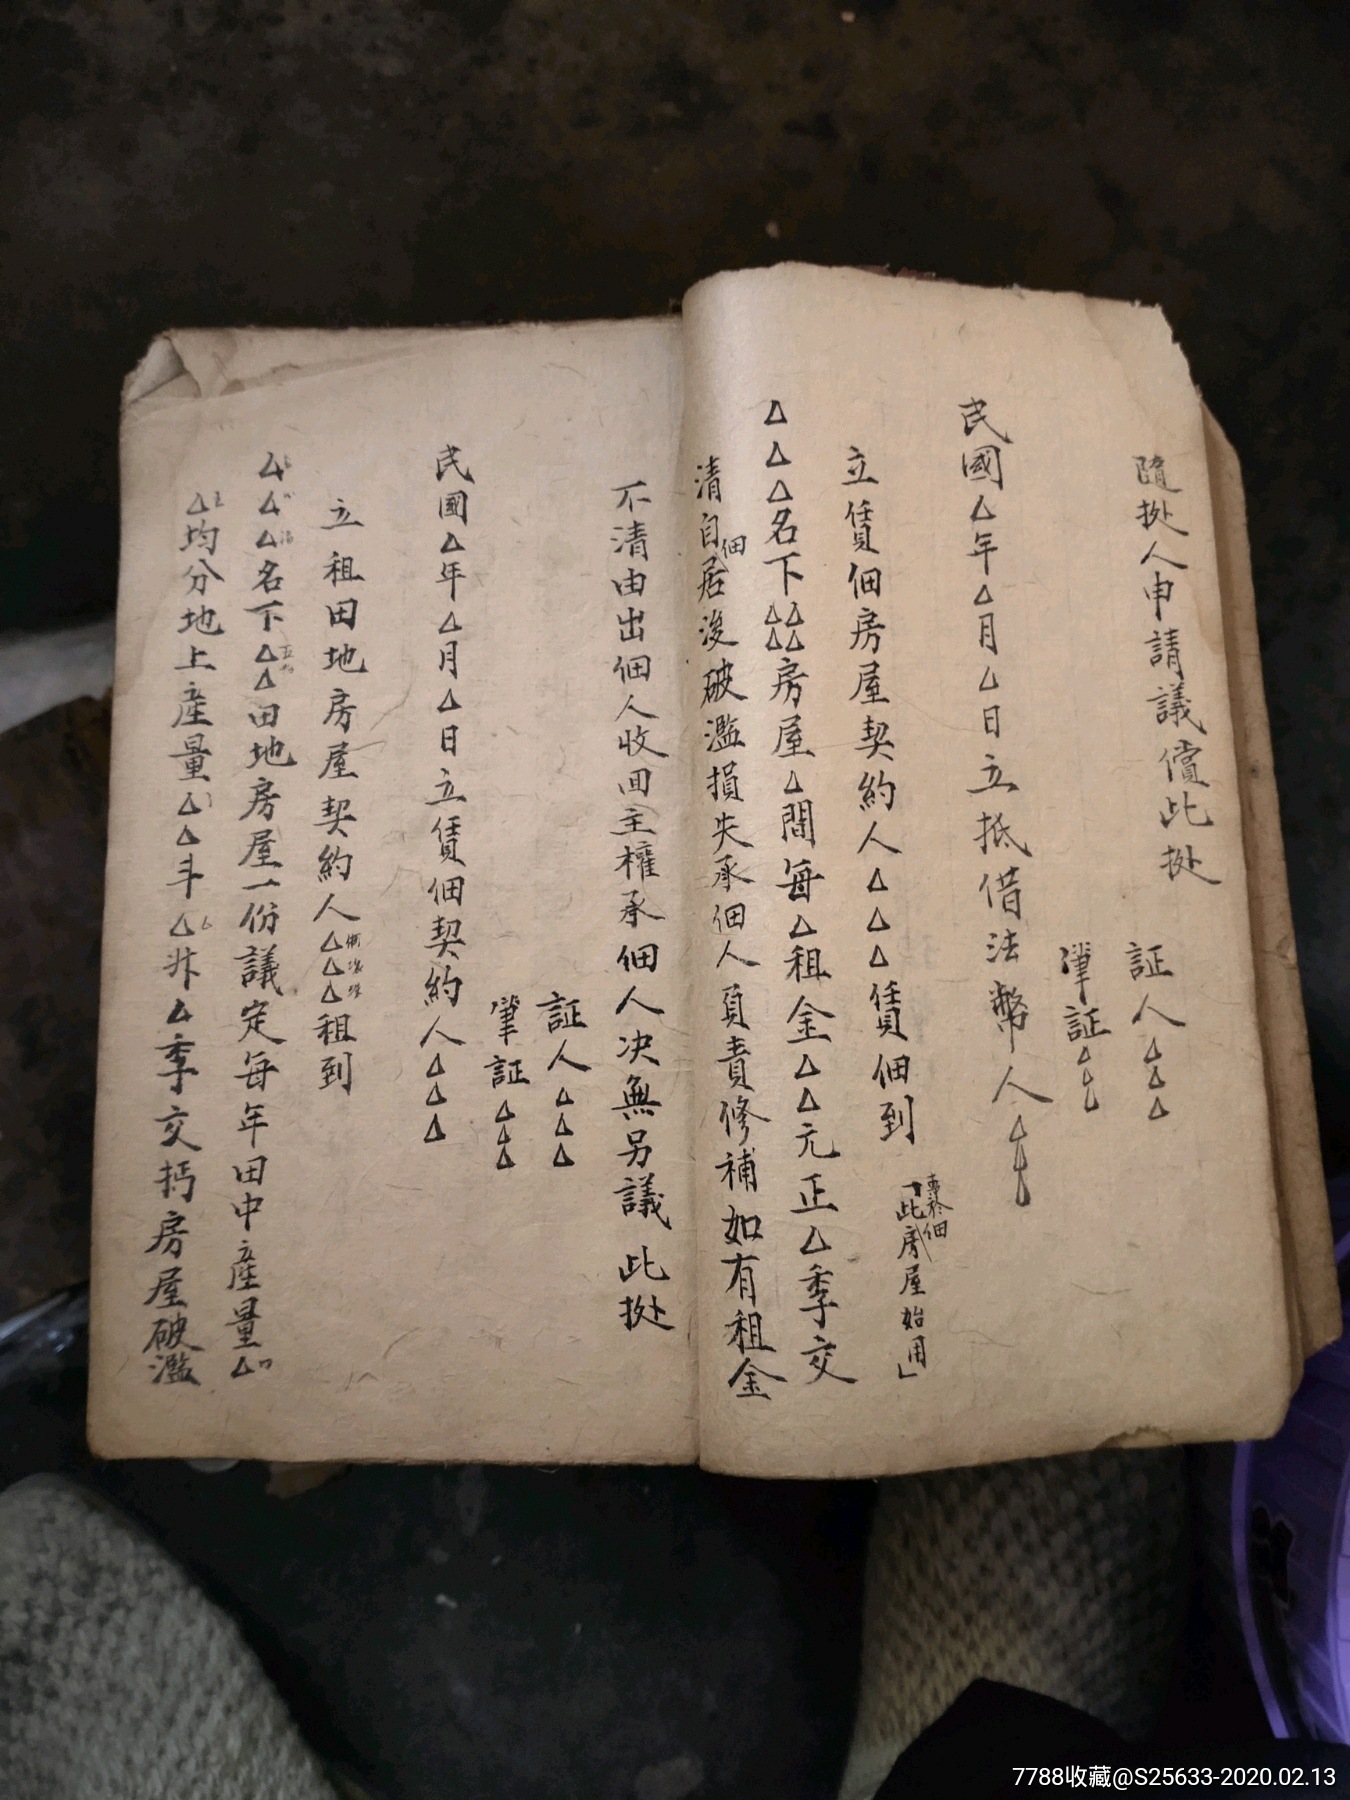 隨挀人申請議償此挀
証人△△△
筆証△△△
民國△年△月△日立抵借法幣人△△△
「此房屋始用」
專於佃
立賃佃房屋契約人△△△賃佃到
△△△名下△△△△房屋△間每△租金△△元正△季交
清自佃居後破濫損失承佃人負責修補如有租金
不清由出佃人收回主權承佃人決無另議此挀
証人△△△
筆証△△△
民國△年△月△日立賃佃契約人△△△
立租田地房屋契約人△△△租到
△△△名下△△田地房屋一份議定每年田中產量△
△均分地上產量△△斗△升△季交扚房屋破濫
7788收藏@S25633-2020.02.13